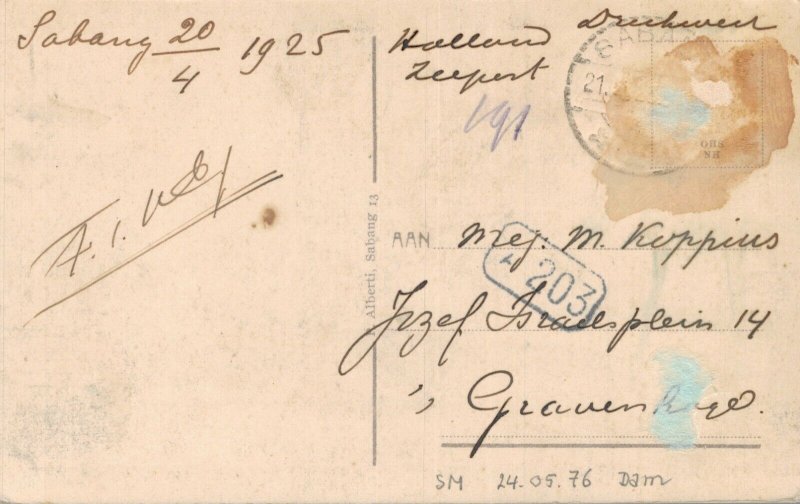 Sabang 20/4 1925
Drukwerk
Holland
Zeepost
SABANG
21.
191
AAN Mej. M. Koppius
A 203
Jozef Israelsplein 14
's Gravenhage.
Alberti, Sabang 13
SM 24.05.76 Dam